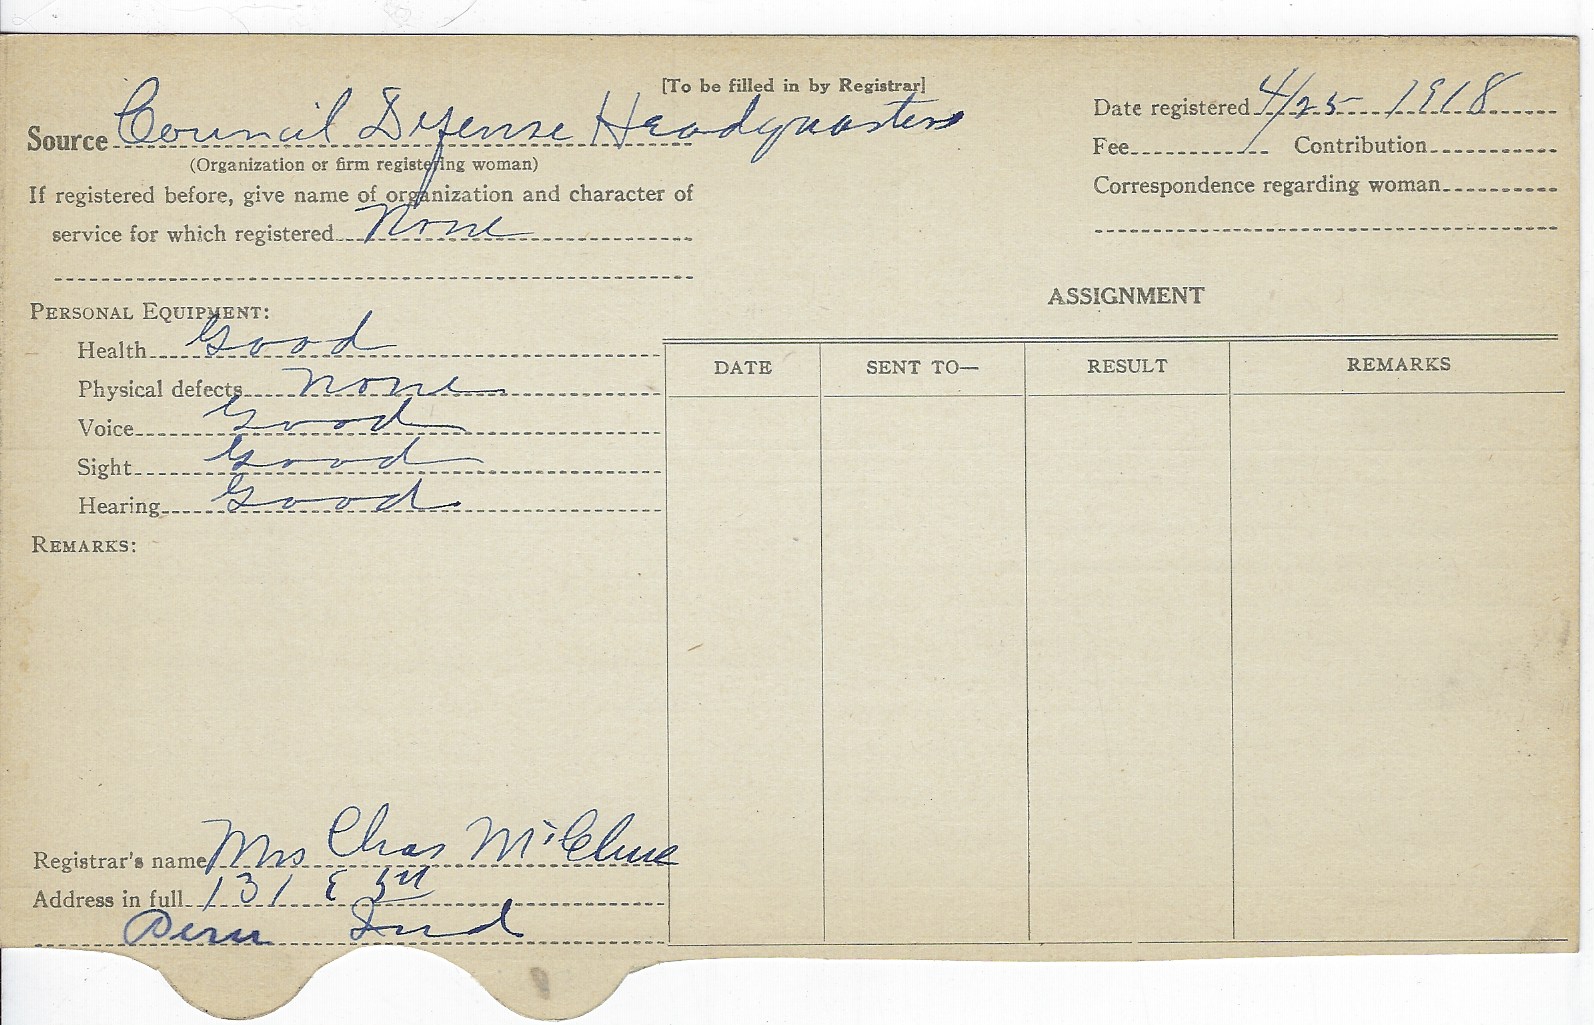 [To be filled in by Registrar]
Source Council Defense Headquarters
(Organization or firm registering woman)
If registered before, give name of organization and character of
service for which registered None
Date registered 4/25 1918
Fee Contribution
Correspondence regarding woman
PERSONAL EQUIPMENT:
Health Good
Physical defects none
Voice Good
Sight Good
Hearing Good
REMARKS:
ASSIGNMENT
DATE SENT TO— RESULT REMARKS
Registrar's name Mrs Chas McClure
Address in full 131 E 5th
Peru Ind